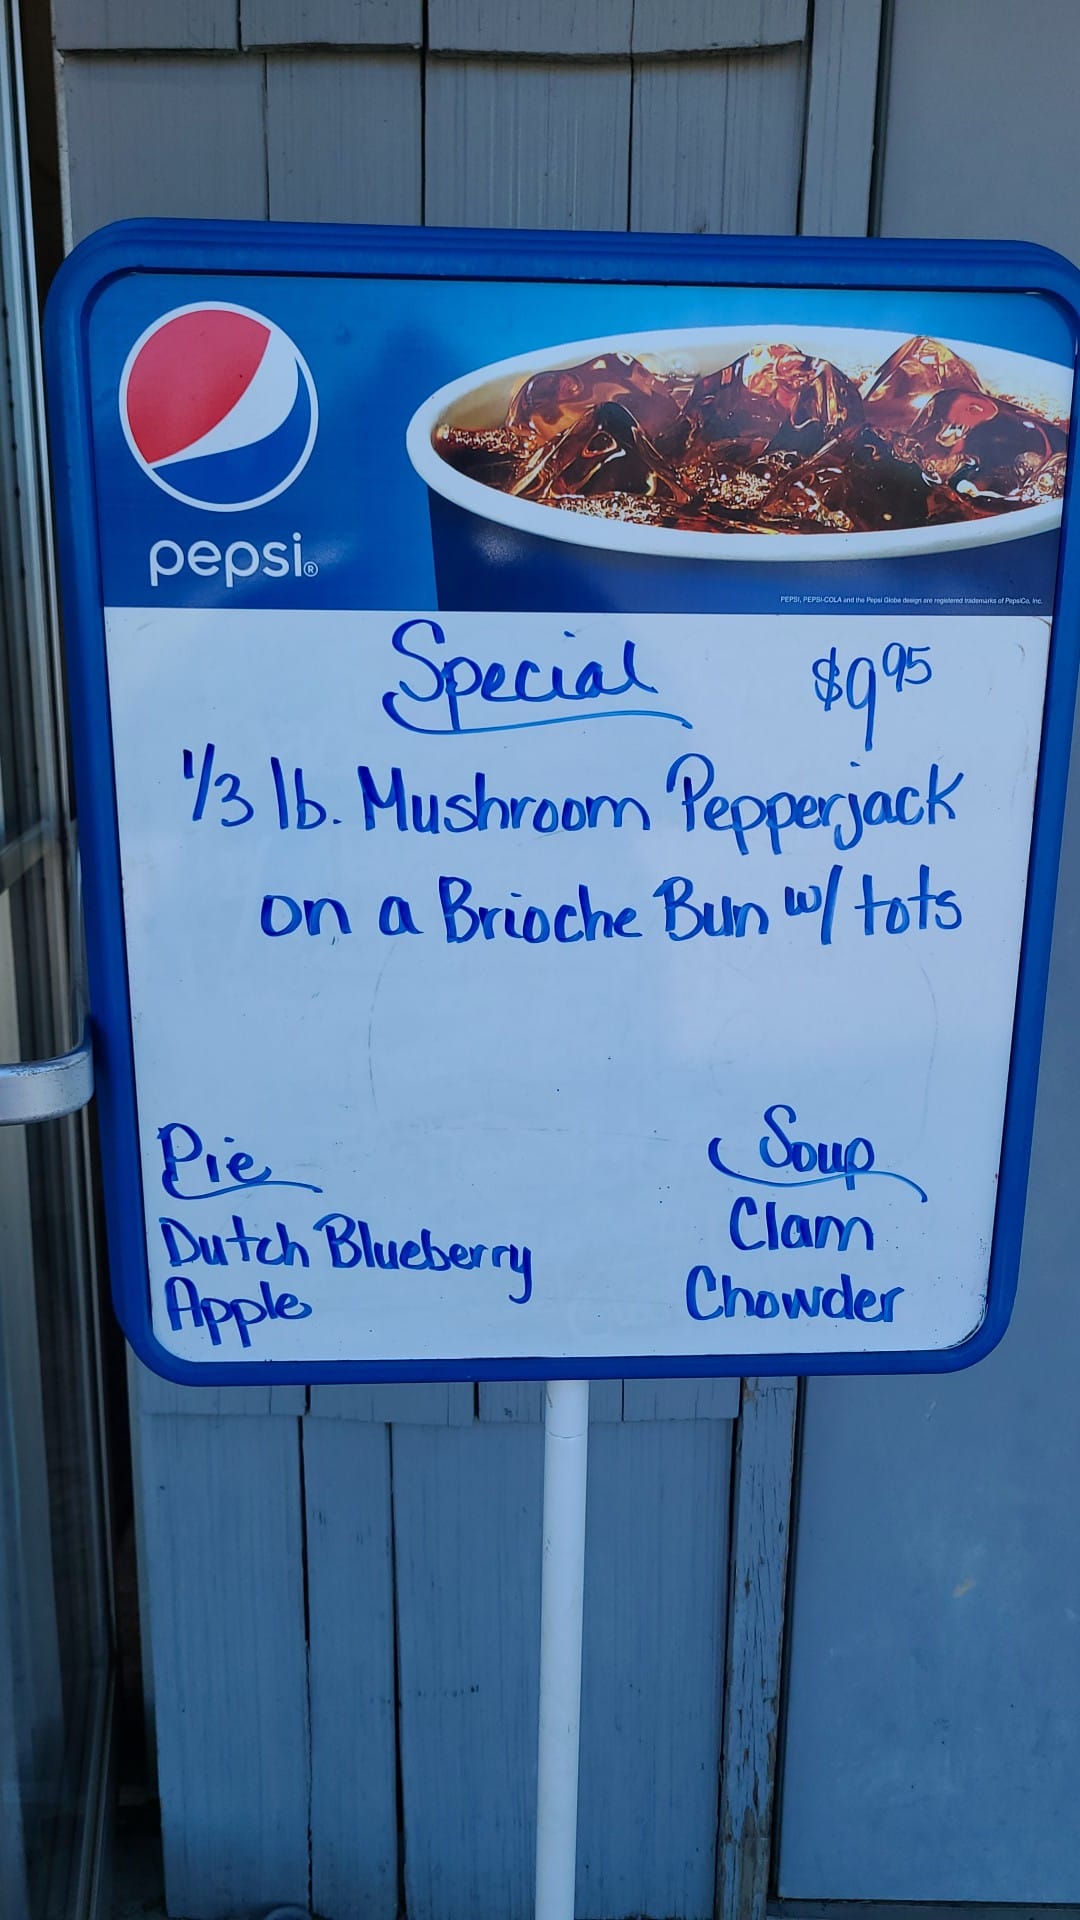 pepsi®
PEPSI, PEPSI-COLA and the Pepsi Globe design are registered trademarks of PepsiCo, Inc.
Special $9 95
1/3 lb. Mushroom Pepperjack
on a Brioche Bun w/ tots
Pie
Dutch Blueberry
Apple
Soup
Clam
Chowder